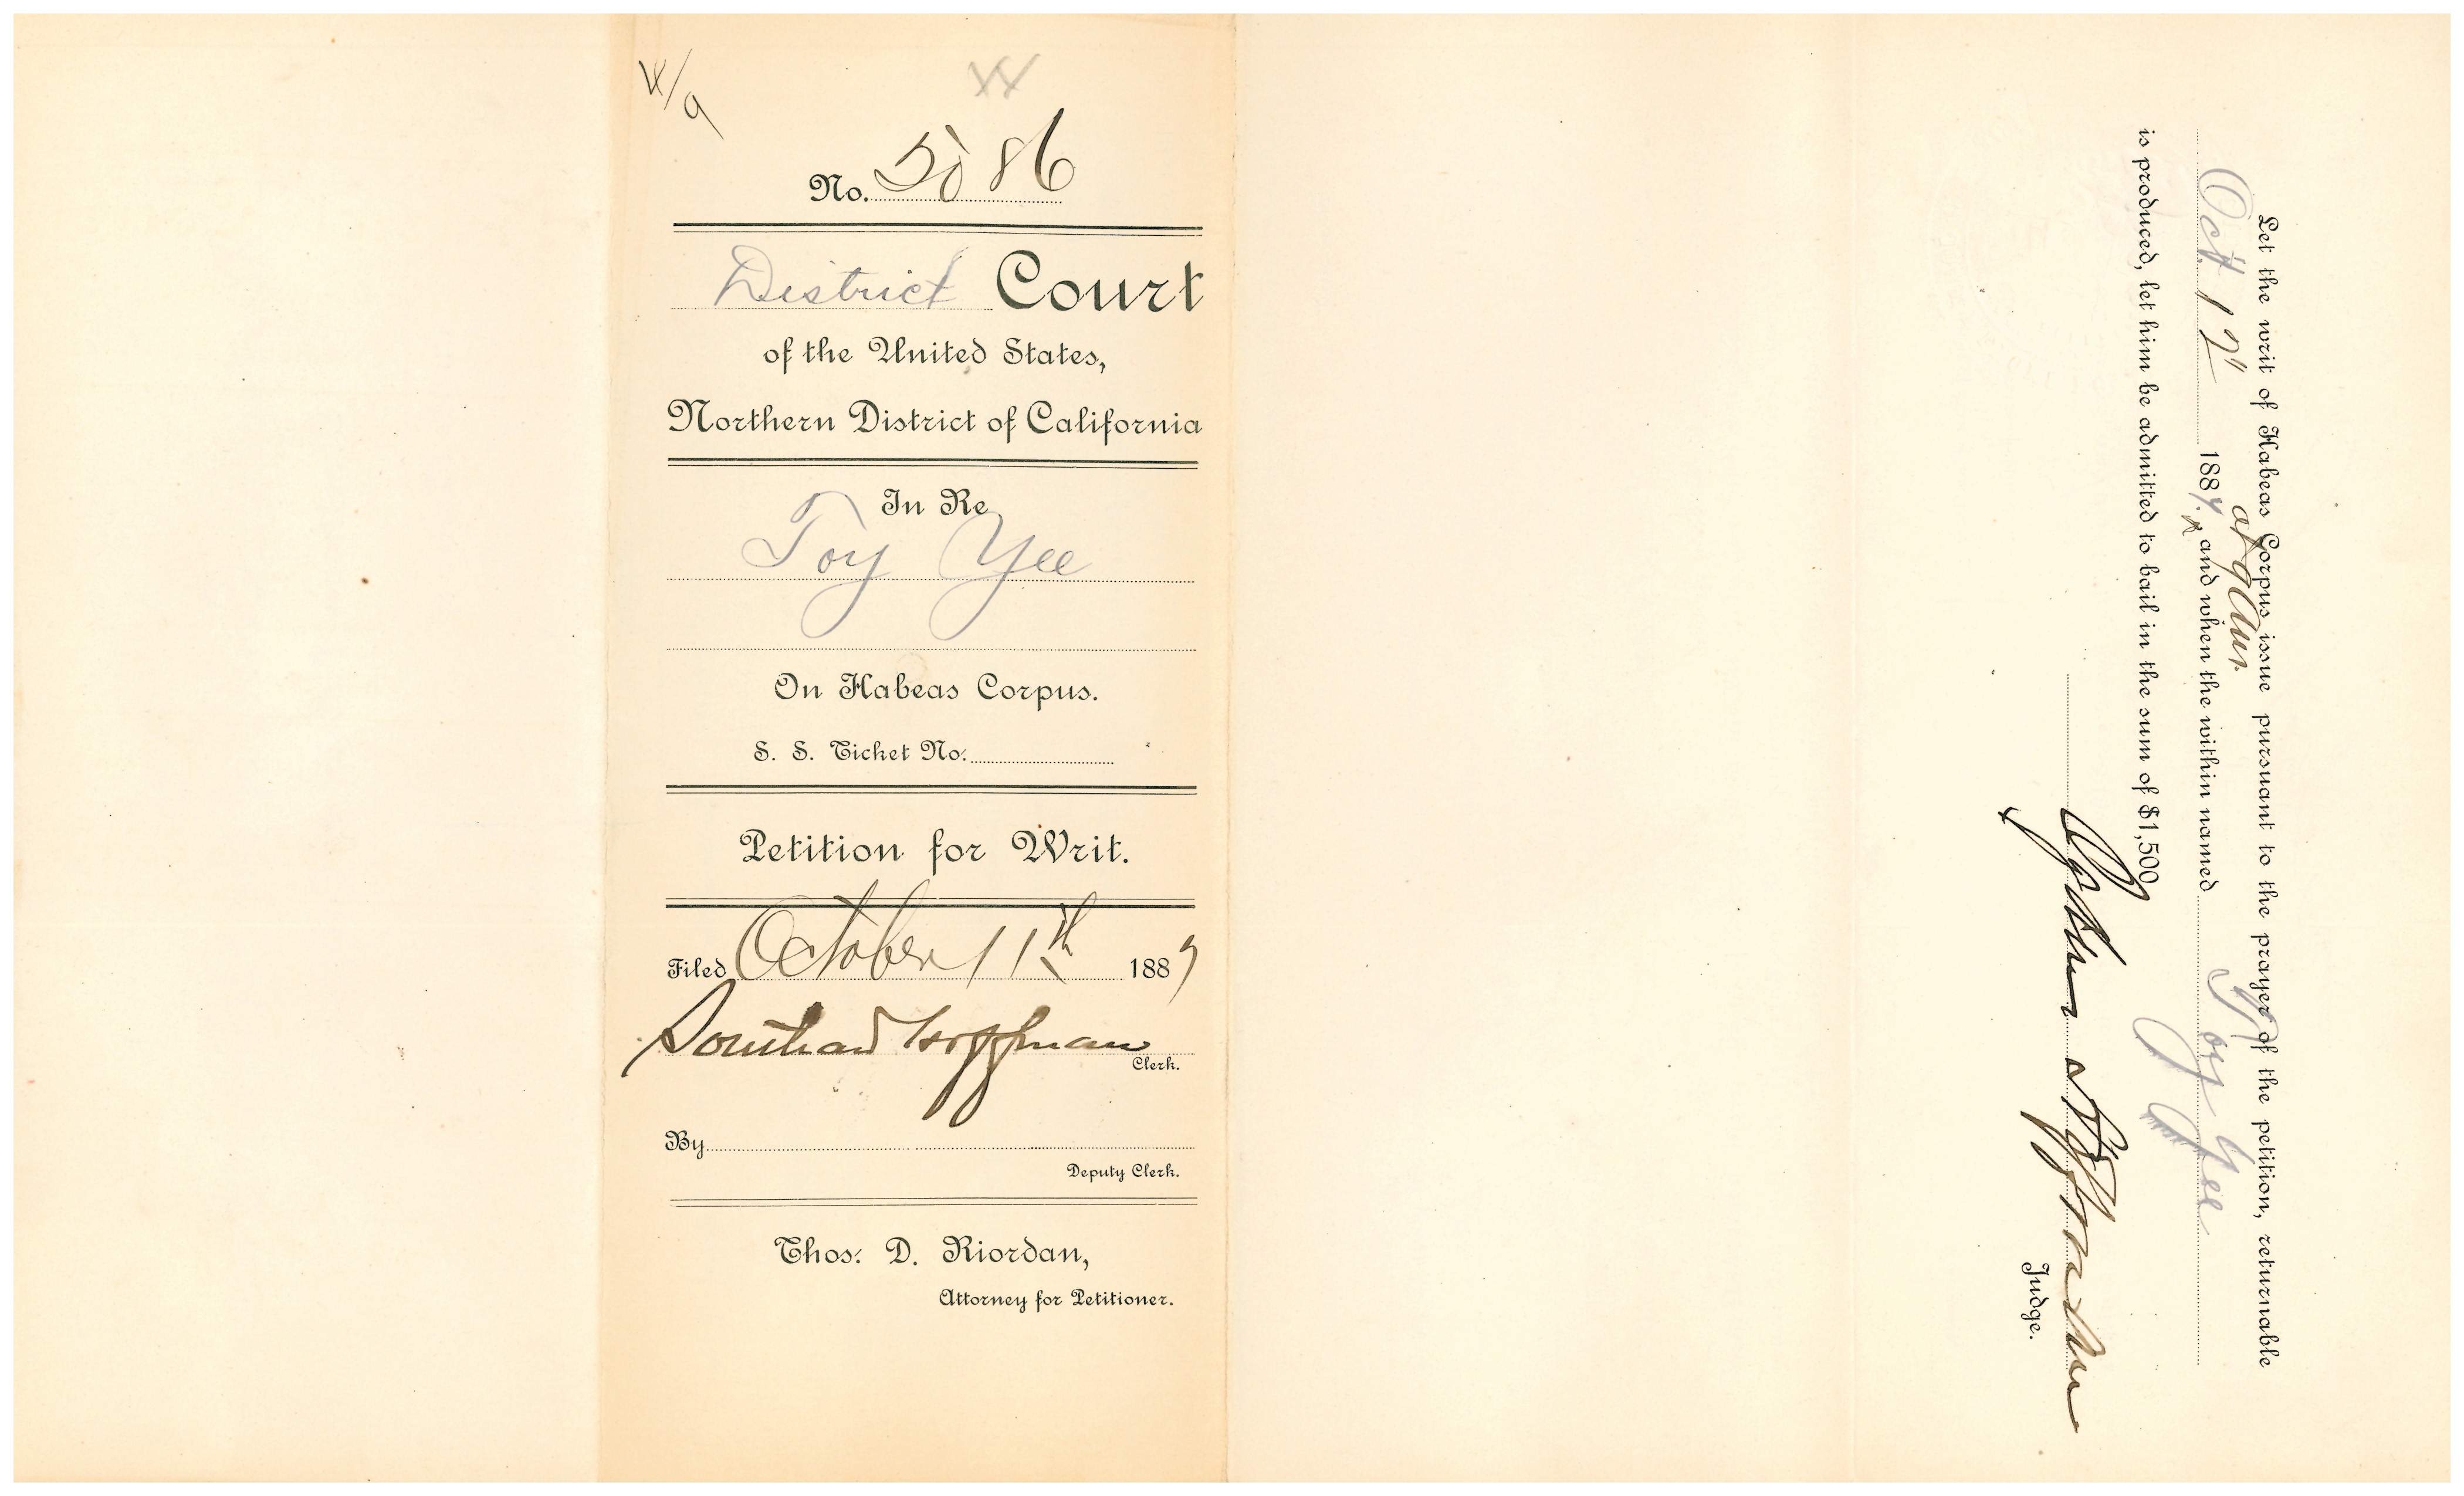 4/9
No. 5086
District Court
of the United States,
Northern District of California
In Re
Toy Yee
On Habeas Corpus.
S. S. Ticket No.
Petition for Writ.
Filed October 11th 1887
Southard Hoffman
Clerk.
By
Deputy Clerk.
Thos. D. Riordan,
Attorney for Petitioner.
Let the writ of Habeas Corpus issue pursuant to the prayer of the petition, returnable
at 9 a.m.
Oct 12" 1887. and when the within named Toy Yee
is produced, let him be admitted to bail in the sum of $1,500
Ogden Hoffman
Judge.